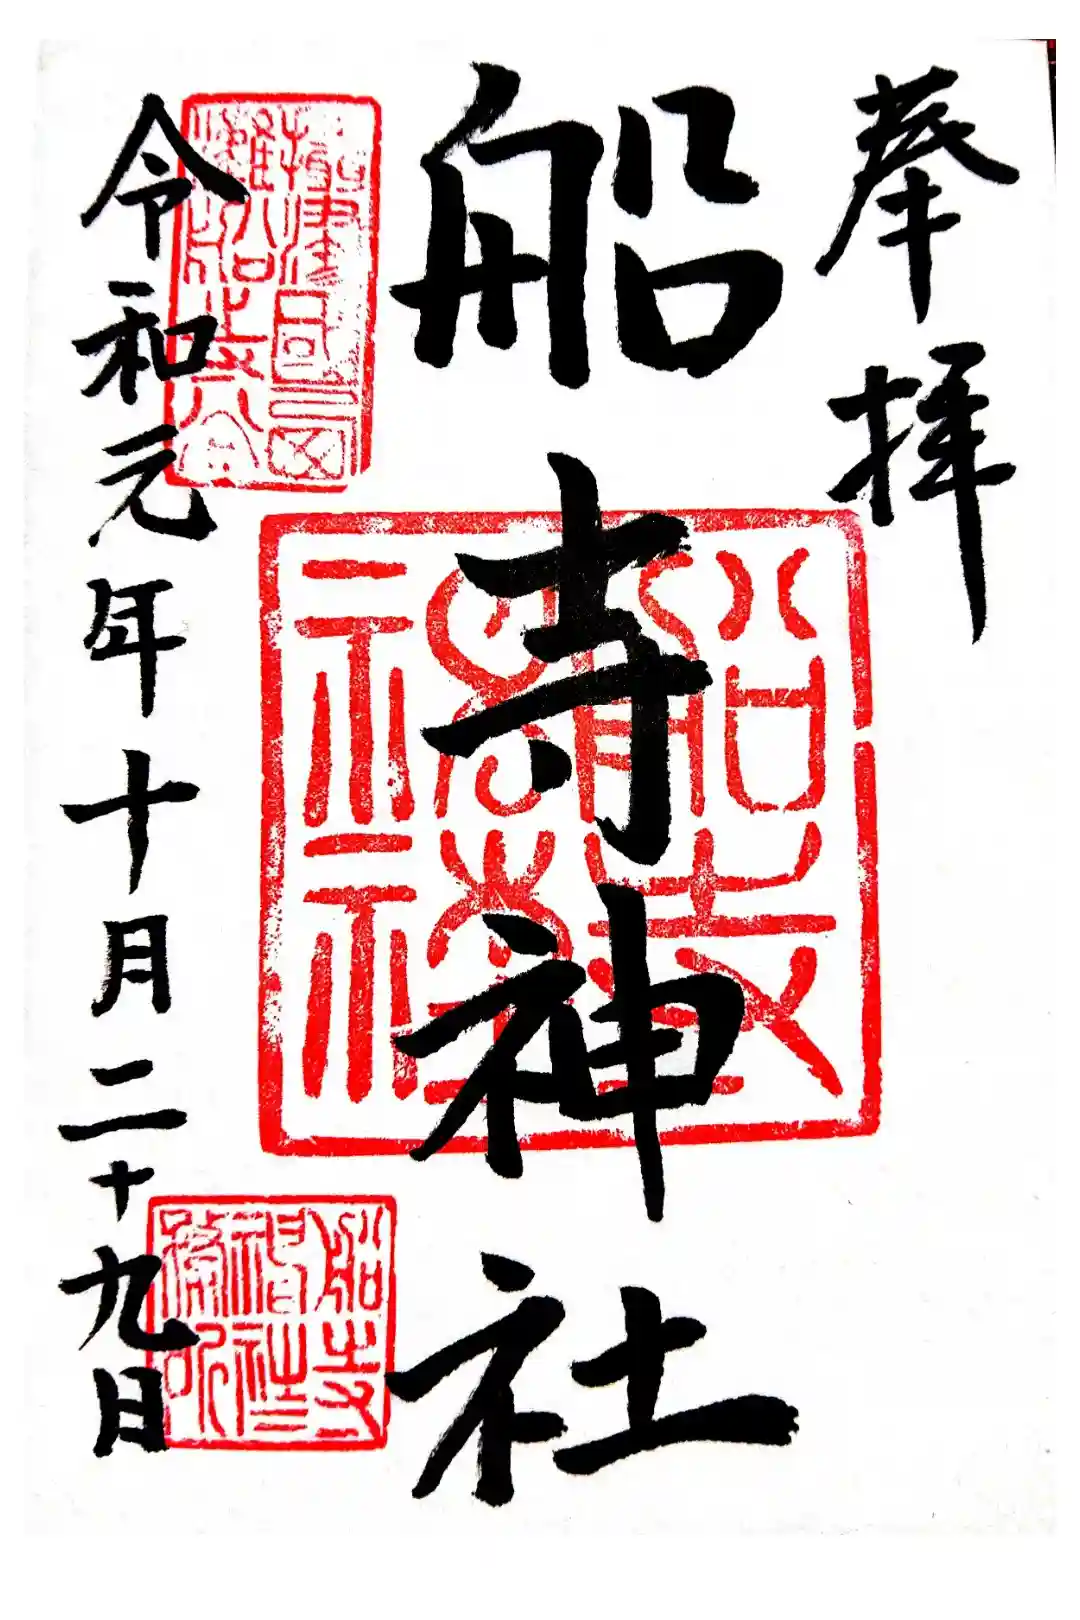 奉拝
船寺神社
令和元年十月二十九日
船寺
神社
船寺
神社
務所